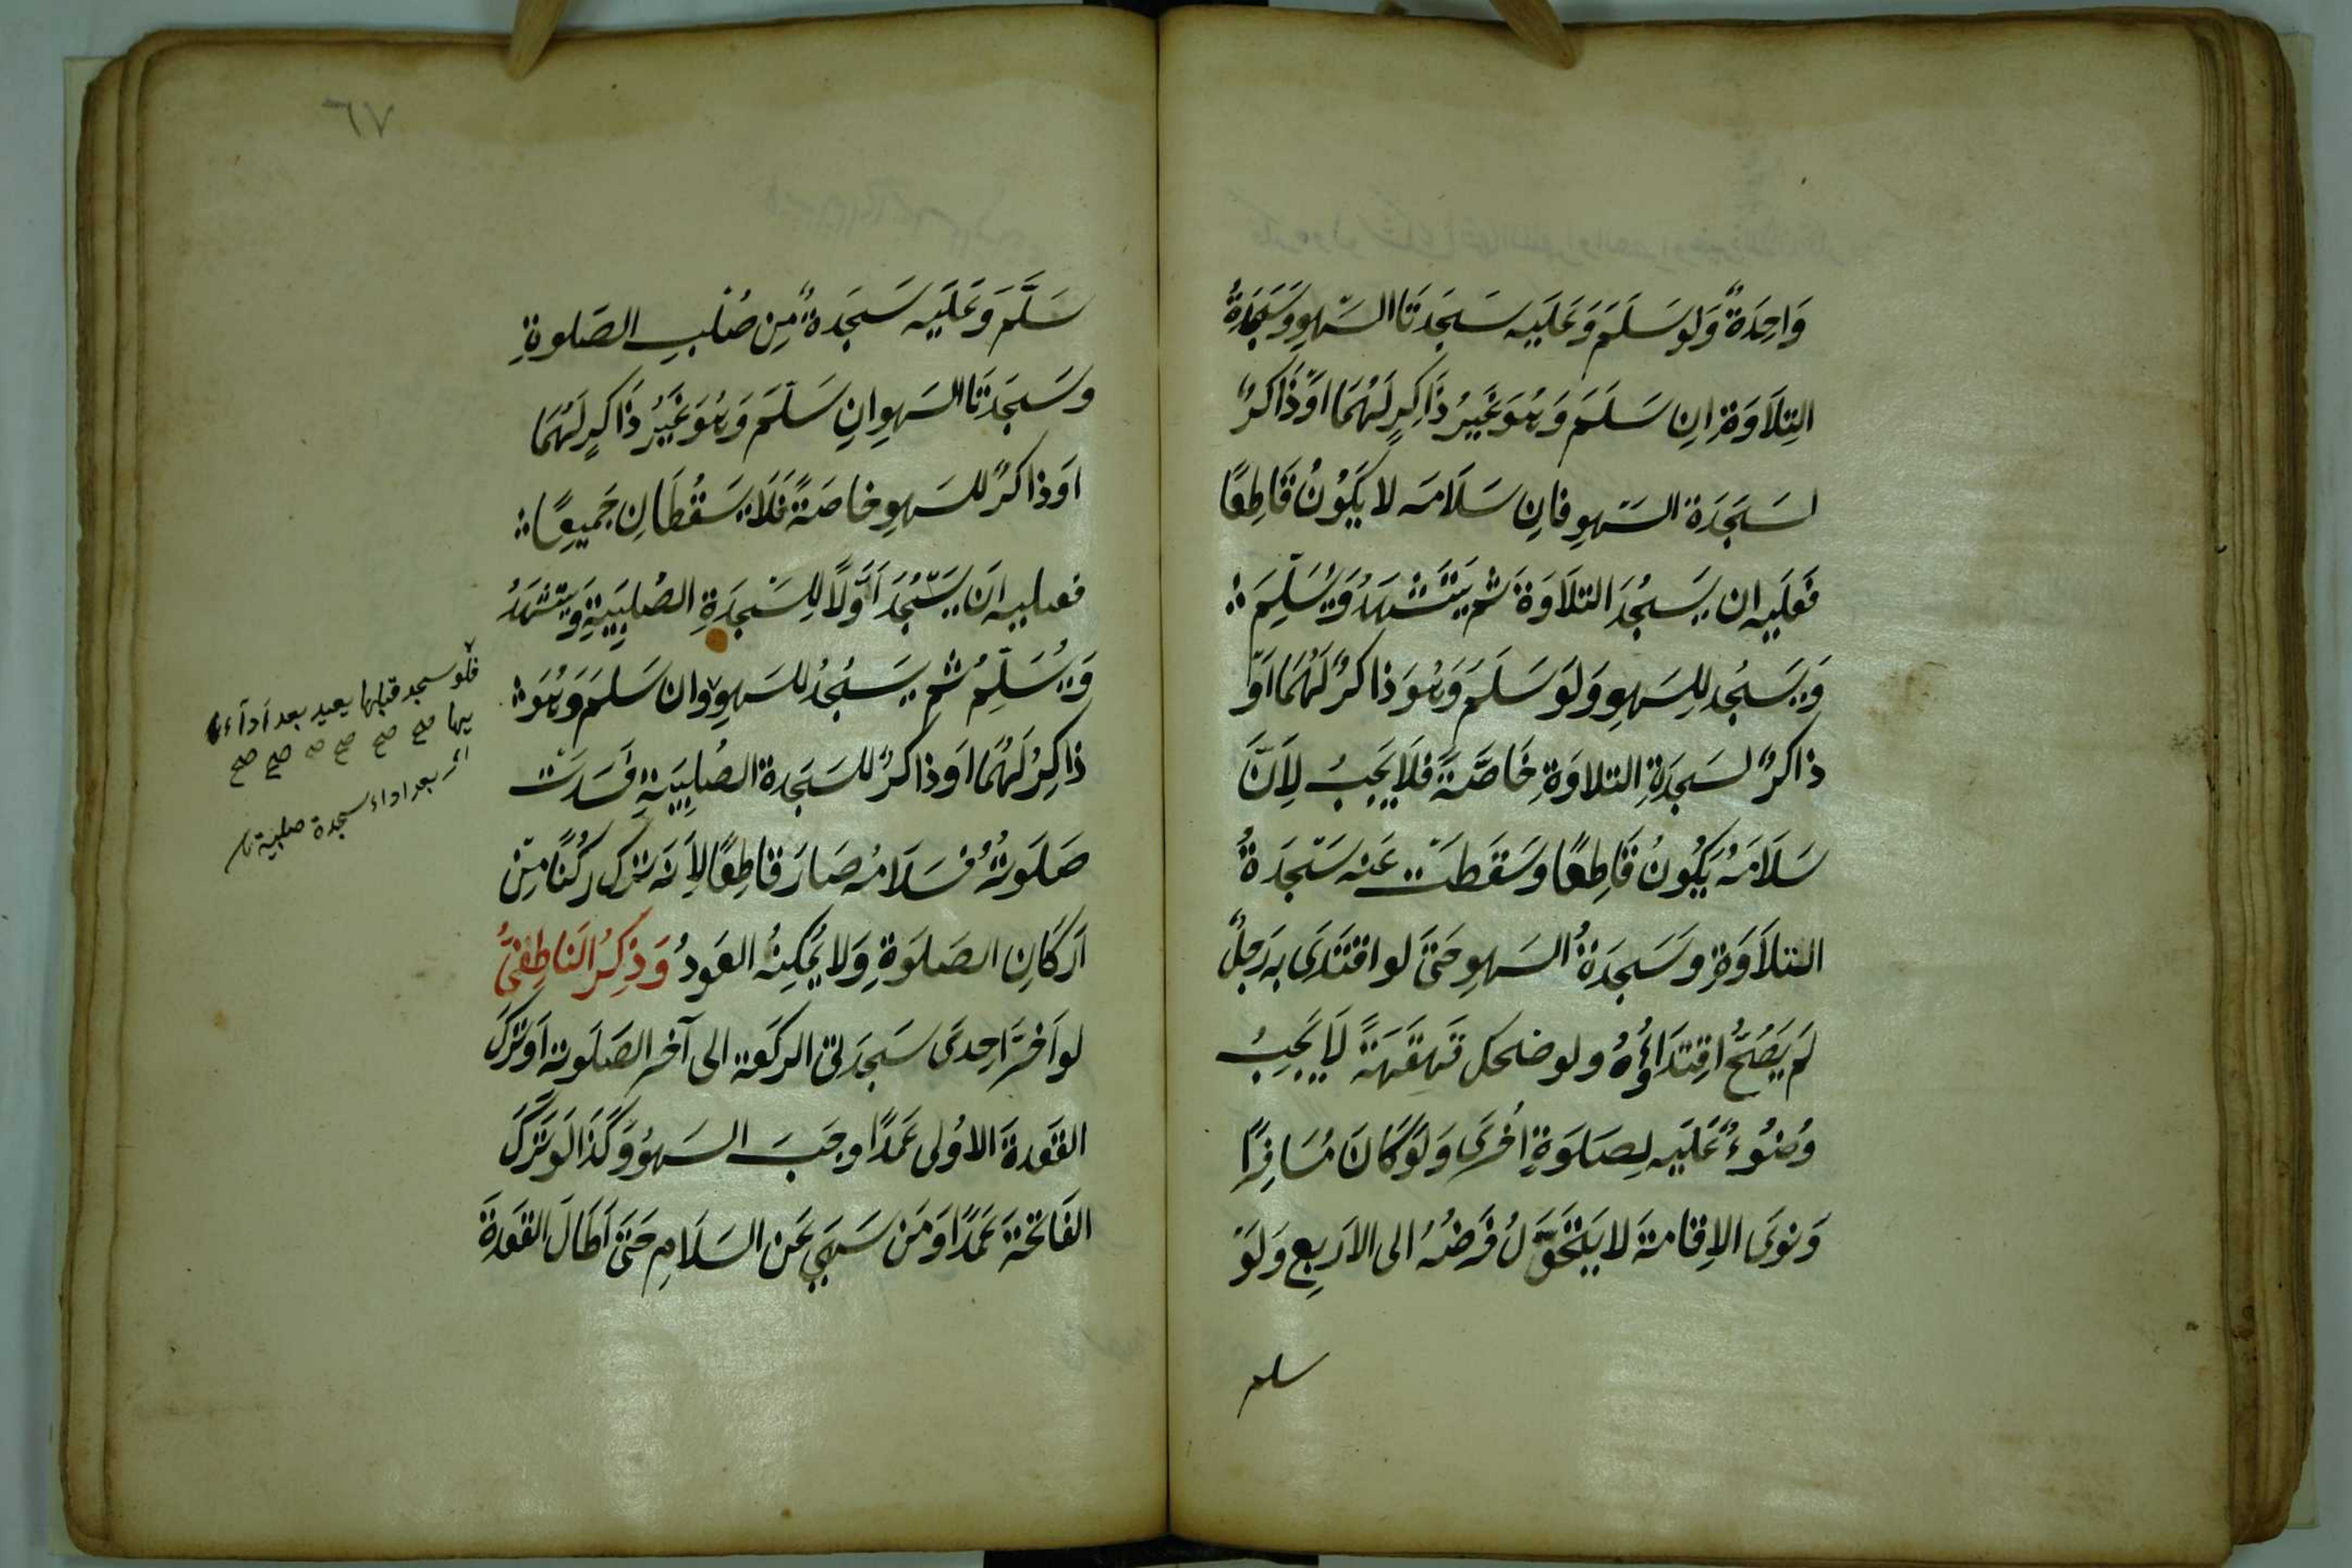 وَاحِدَةٌ وَلَو سَلَّمَ وَعَلَيه سَجدَتَا السَّهوِ وَسَجدَةُ
التِلَاوَةِ اِن سَلَّمَ وَهُوَ غَيرُ ذَاكِرٍ لَهُمَا اَو ذَاكرٌ
لسَجَدَة السَّهوِ فاِن سَلَامَه لا يَكُونُ قَاطِعًا
فَعَلَيه ان يَسجُدَ التلَاوَة ثم يَتَشَهدُ وَيُسَلِّمَ
وَيَسجُد لِلسَهوِ وَلَو سَلَّمَ وَهُوَ ذاكرٌ لَهُمَا اَو
ذاكرٌ لسَجدَةِ التلاوَةِ خَاصَّةً فلَا يَجبُ لِاَنَّ
سَلَامَهُ يَكُونُ قَاطِعًا وسَقَطَت عَنه سَجَدَةُ
التلَاوَةِ وَسَجدَةُ السَهوِ حَتىَّ لو اقتَدَى به رَجلٌ
لَم يَصُحُّ اقِتدَاؤُهُ ولو ضحك قَهقَهَةً لَا يَجِبُ
وُضُوءٌ عَلَيه لِصَلَوَةٍ اُخرَى وَلَو كَانَ مُسَافِرًا
وَنوَى الاِقَامَةَ لا يَتَحَوَّلُ فَرضُهُ الى الاَربعِ وَلَو
سلم
٧٦
سَلَّمَ وَعَلَيه سَجَدَةٌ مِن صُلبِ الصَلوةِ
وسَجدَتَا السَهوِ اِن سَلَّمَ وَهُوَ غَيرُ ذَاكرٍ لَهُمَا
اَو ذاكرٌ للسَهوِ خاصَةً فَلَا يَسقُطَانِ جَميعًا
فعليه اَن يَسجُدَ اَوَّلًا لِلسَجدَةِ الصُلبِيَةِ وَيَتشَهَدُ
وَيُسَلِّمُ ثم يَسجُدُ للسَهوِ وان سَلمَ وَهُوَ
ذاكِرٌ لَهُمَا اَو ذاكرٌ للسَجَدة الصُلبِيَةِ فسَدَت
صَلَوتُهُ فسَلَامُه صَارَ قاطِعًا لِاَنَه ترك ركُنًا مِن
اَركَانِ الصَلَوَةِ وَلا يُمكِنُه العَودُ وَذِكرُ النَاطِفىُّ
لو اَخرَّ احِدىَ سَجدَتى الركَعة الى آخر الصَلَوة اَو تَركَ
القَعَدةَ الاوُلى عَمَدًا وجَبَ السَهوُ وَكَذَا لَو تَرَكَ
الفَاتحَة عَمَدًا وَمَن سَهَى عَن السَلَامِ حَتىَّ اَطَالَ القَعَدةَ
فلو سجد قبلها يعيد بعد اداء
يها صح صح صح صح صح صح
اى بعد اداء سجدة صلبية